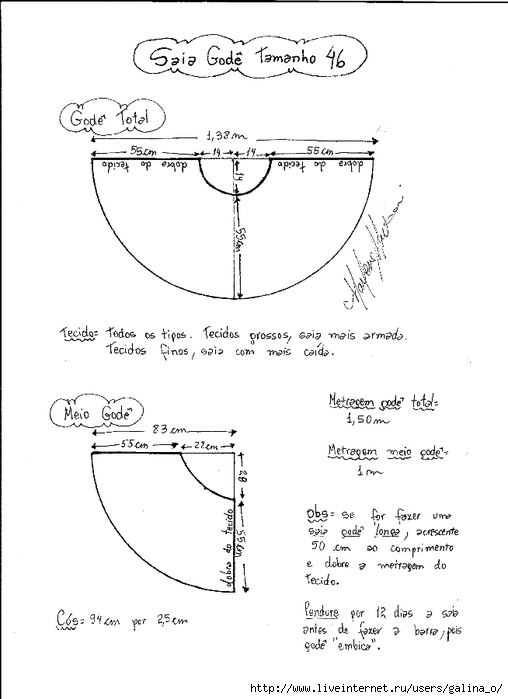 Saia Godê Tamanho 46
Godê Total
1,38m
55cm 14 14 55cm
dobra do tecido dobra do tecido
14
55cm
Tecido= Todos os tipos. Tecidos grossos, saia mais armada.
Tecidos finos, saia com mais caída.
Meio Godê
83 cm
55cm
28
55cm
dobra do tecido
Cós= 94cm por 25cm
Metragem godê total=
1,50m
Metragem meio godê=
1m
Obs= se for fazer uma
saia godê longa, acrescente
50 cm ao comprimento
e dobre a metragem do
tecido.
Pendure por 12 dias a saia
antes de fazer a barra, pois
godê "embica".
http://www.liveinternet.ru/users/galina_o/